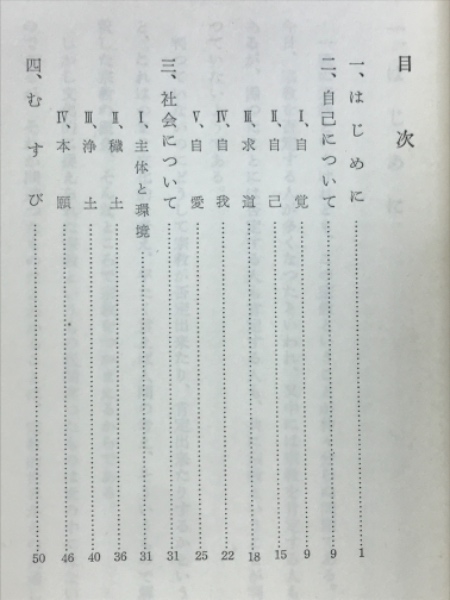 目次
一、はじめに…………1
二、自己について…………9
Ⅰ、自覚…………9
Ⅱ、自己…………15
Ⅲ、求道…………18
Ⅳ、自我…………22
Ⅴ、自愛…………25
三、社会について…………31
Ⅰ、主体と環境…………31
Ⅱ、穢土…………36
Ⅲ、浄土…………40
Ⅳ、本願…………46
四、むすび…………50